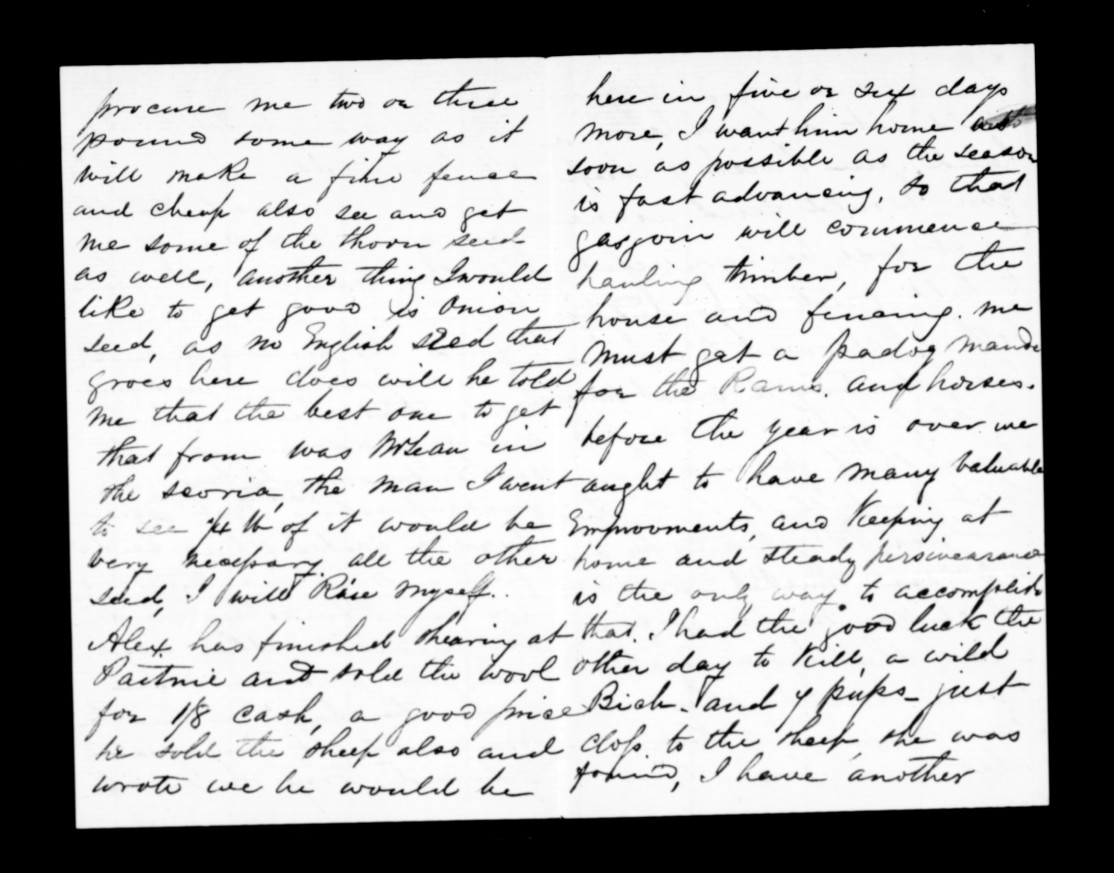 procure me two or three
pound some way as it
will make a fine fence
and cheap also see and get
me some of the thorn seed
as well, another thing I would
like to get good is Onion
seed, as no English seed that
groes here does will he told
me that the best one to get
that from was McLean in
the scoria, the man I went
to see ¼ lb of it would be
very necessary. all the other
seed, I will Raise myself..
Alex has finished shearing at
and sold the wool
for 1/8 cash, a good price
he sold the sheep also and
wrote we he would be
here in five or six days
more, I want him home as
soon as possible as the season
is fast advancing, so that
gasgoin will commence
hauling timber, for the
house and fencing. me
must get a padog mande
for the Rams. and horses.
before the year is over we
aught to have many valuable
Emprovments, and Keeping at
home and steady persivearance
is the only way. to accomplish
that. I had the good luck the
other day to Kill, a wild
Bich. and 7 pups - just
close to the sheep, she was
found, I have another